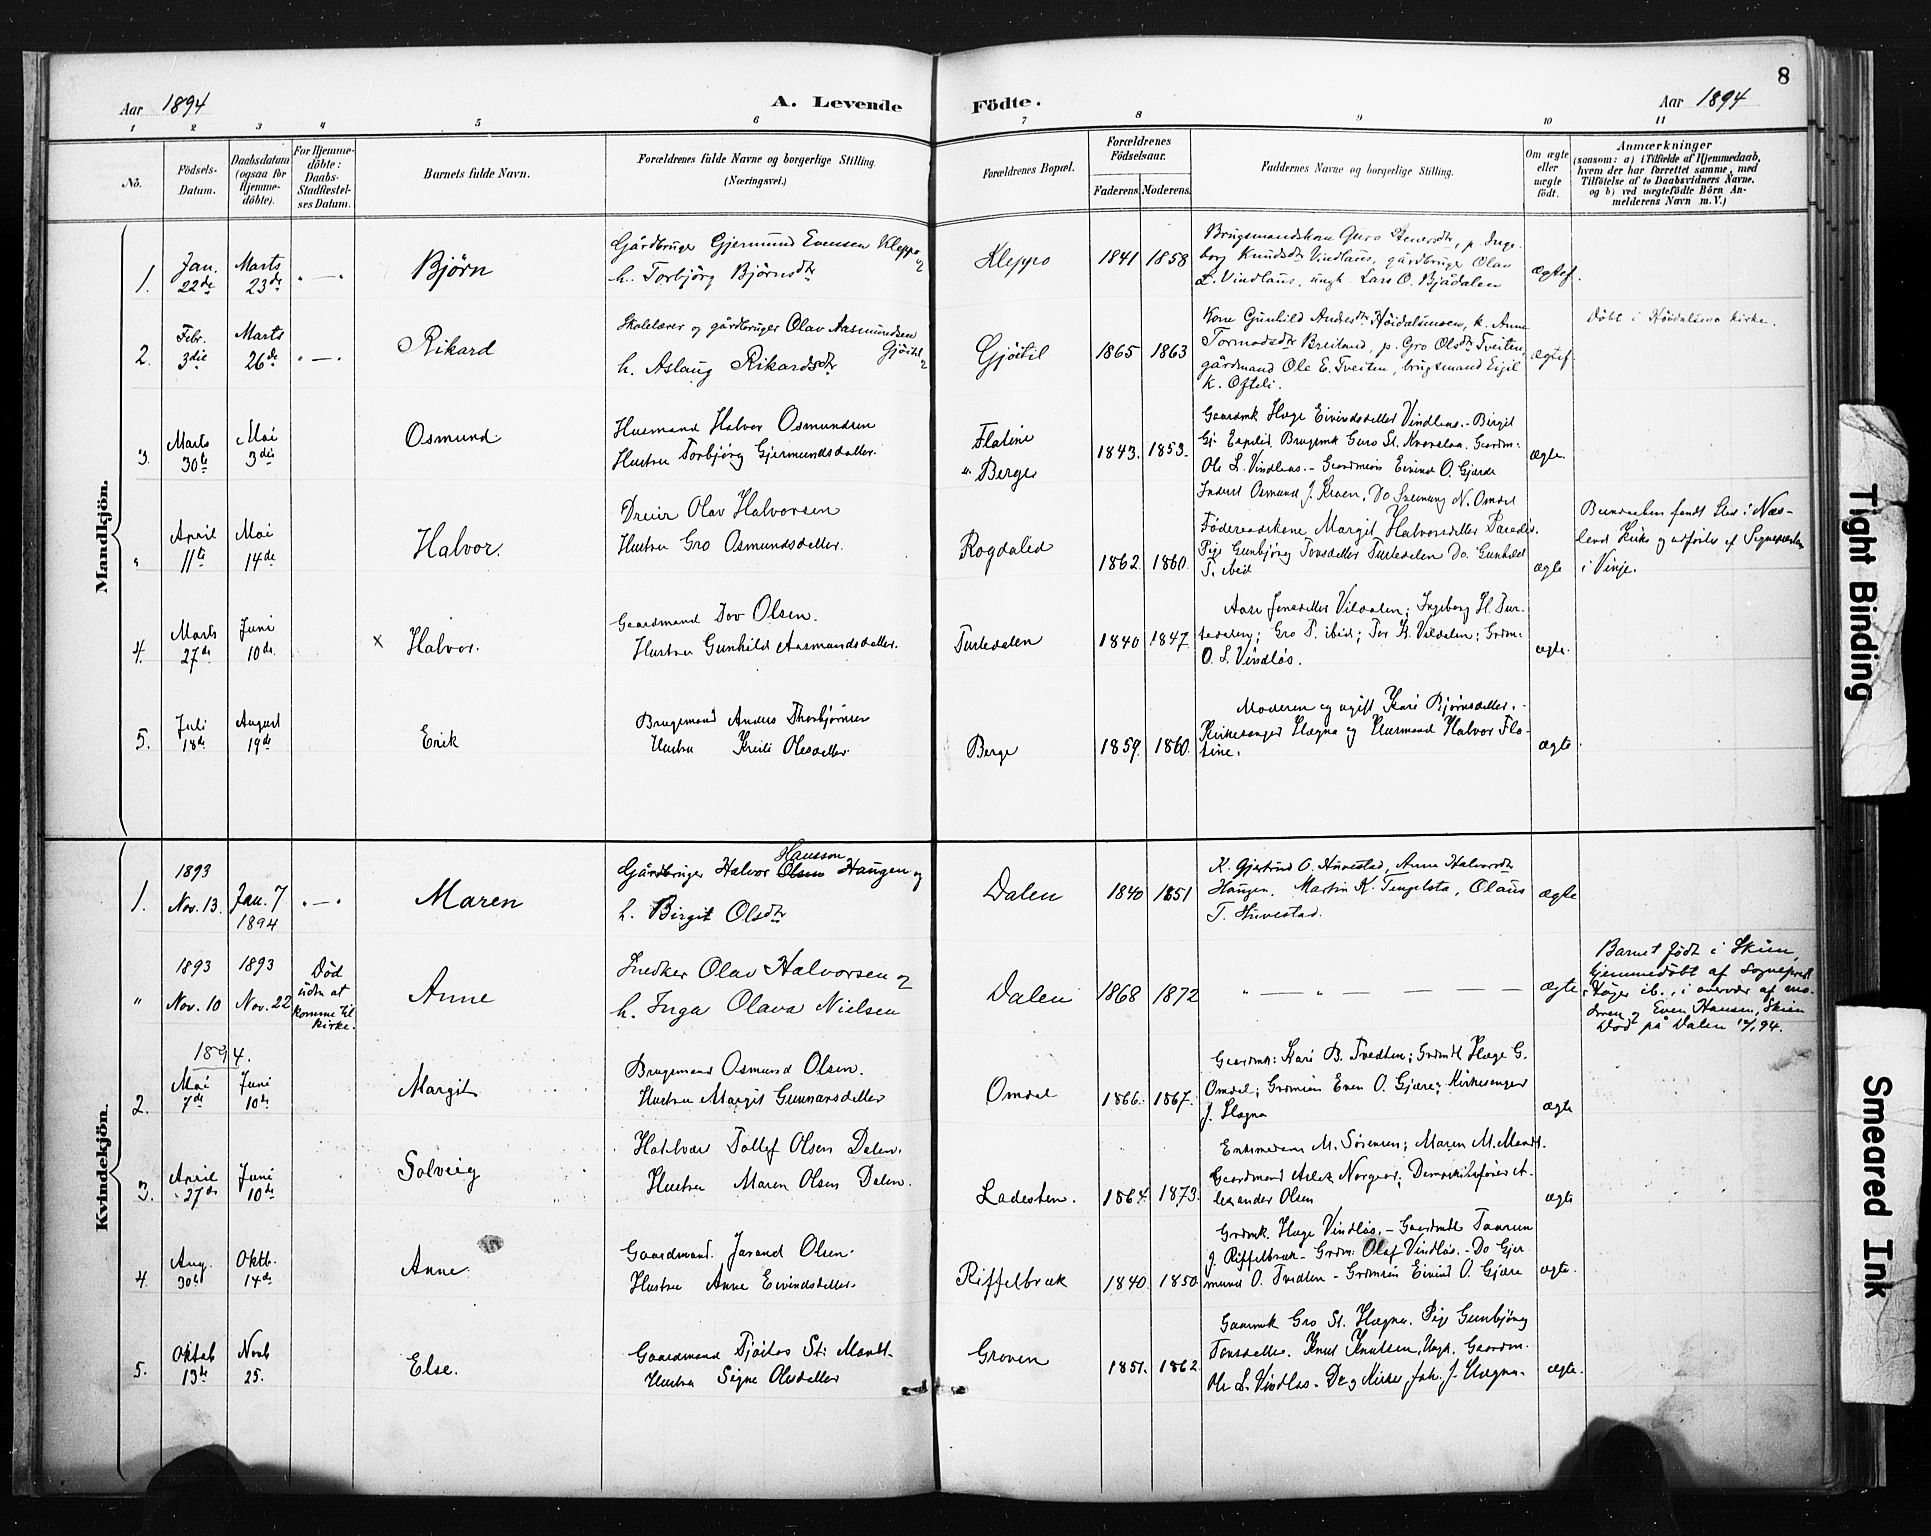 8
Aar 1894
A. Levende
Födte.
Aar 1894
1 2 3 4 5 6 7 8 9 10 11
No.
Födsels-
Datum.
Daabsdatum
(ogsaa for
Hjemme-
döbte).
For Hjemme-
döbte:
Daabs-
Stadfæstel-
ses Datum.
Barnets fulde Navn.
Forældrenes fulde Navne og borgerlige Stilling.
(Næringsvei.)
Forældrenes Bopæl.
Forældrenes
Födselsaar.
Faderens. Moderens.
Faddernes Navne og borgerlige Stilling.
Om ægte
eller
uægte
födt.
Anmærkninger
(saasom: a) i Tilfælde af Hjemmedaab,
hvem der har forrettet samme, med
Tilföielse af to Daabsvidners Navne.
og b) ved uægtefödte Börn An-
melderens Navn m. V.)
Mandkjön.
1. Jan. 22de
Marts 23de
" — "
Bjørn
Gårdbruger Gjermund Evensen Kleppo og
h. Torbjörg Björnsdtr
Kleppo
1841 1858
Brugsmandskone Guro Stenersdtr, p. Inge-
borg Knudsdtr Vindlaus, gårdbruger Olav
L. Vindlaus, ungk. Lars O. Bjådalen
ægtef.
2. Febr. 3die
Marts 26de
" — "
Rikard
Skolelærer og gårdbruger Olav Aasmundsen
Gjøitil og
h. Aslaug Rikardsdtr
Gjøitil
1865 1863
Kone Gunhild Andersdtr Höidalsmoen, k. Anne
Tormodsdtr Breiland, p. Gro Olsdtr Tveiten,
gårdmand Ole E. Tveiten, brugsmand Eigil
K. Ofteli.
ægtef.
Döbt i Höidalsmo kirke.
3. Marts 30te
Mai 3die
Osmund
Husmand Halvor Osmundsen
Hustru Torbjörg Gjermundsdatter.
Flatine
" Berge
1843. 1853.
Gaardmk Hæge Eivindsdatter Vindlaus. - Birgit
Gj. Espelid Brugsmk Guro St. Gaardm:
Ole L. Vindlaus. - Gaardmsön Eivind O. Gjærde
ægte.
" April 11te
Mai 14de
Halvor.
Dreier Olav Halvorsen
Hustru Gro Osmundsdatter.
Rogdalid
1862. 1860.
Inderst Osmund J. Do N. Omdal
Föderaadskone Margit Halvorsdatter
Pige Gunbjörg Tovsdatter Turtedalen Do. Gunhild
T. ibid
ægte
fandt Sted i Næs-
land Kirke og udförtes af Sognepræsten
i Vinje.
4. Marts 27de
Juni 10de
x Halvor.
Gaardmand Tov Olsen.
Hustru Gunhild Aasmundsdatter.
Turtedalen
1840 1847
Aase Jensdatter Vildalen; Ingeborg H. Tur-
tedalen; Gro T. ibid; Tor K. Vildalen; Grdm:
O. L. Vindlös.
ægte.
5. Juli 18de
August 19de
Erik
Brugsmand Anders Thorbjörnsen
Hustru Kristi Olesdatter
Berge
1859. 1860.
Moderen og ugift Kari Björnsdatter. -
Kirkesanger Hægna og Husmand Halvor Fla-
tine.
ægte
Kvindekjön.
1. 1893 Nov. 13.
Jan. 7 1894
" — "
Maren
Hansson
Gårdbruger Halvor Olsen Haugen og
h. Birgit Olsdtr
Dalen
1840 1851
K. Gjertrud O. Huvestad, Anne Halvorsdtr
Haugen. Martin K. Tengelsta, Olaus
T. Huvestad.
ægte
" 1893 Nov. 10
1893 Nov. 22
Död
uden at
komme til
kirke.
Anne
Snedker Olav Halvorsen og
h. Inga Olava Nielsen
Dalen
1868 1872
" — " — — —
ægte
Barnet födt i Skien,
hjemmedöbt af Sogneprest
Höyer ib., i overvær af mo-
deren og Even Hansen, Skien
Död på Dalen 94.
1894.
2. Mai 7de
Juni 10de
Margit
Brugsmand Osmund Olsen.
Hustru Margit Gunnarsdatter
Omdal
1866. 1867.
Gaardmk: Kari B. Tvedten; Grdmdt Hæge G.
Omdal; Grdmsön Even O. Gjære; Kirkesanger
J. Hægna
ægte
3. April 27de
Juni 10de
Solveig
Hotelvært Tollef Olsen Dalen.
Hustru Maren Olsen Dalen.
Ladesten.
1864. 1873.
M. Sörensen; Maren M. Mandt.
Gaardmand Aslak Norgaar; Dampskibsförer A-
lexander Olsen
ægte
4. Aug. 30te
Oktb. 14de
Anne
Gaardmand Jarand Olsen.
Hustru Anne Eivindsdatter.
Riffelbræk
1840. 1850.
Grdmk. Hæge Vindlös. - Gaardmdt Taarun
J. Riffelbræk - Grdm: Olaf Vindlös. - Do Gjer
mund O. Tvedten - Grdmsön Eivind O. Gjære
ægte.
5. Oktob 13de
Novb 25.
Else.
Gaardmand Tjöstov St: Mandt.
Hustru Signe Olesdatter
Groven
1851. 1862.
Gaarmk Gro St. Hægna. Pige Gunbjörg
Tovsdatter. Knut Knutsen, Ungk. Gaardm.
Ole L. Vindlös. - Joh. J. Hægna.
ægte.
Tight Binding
Smeared Ink